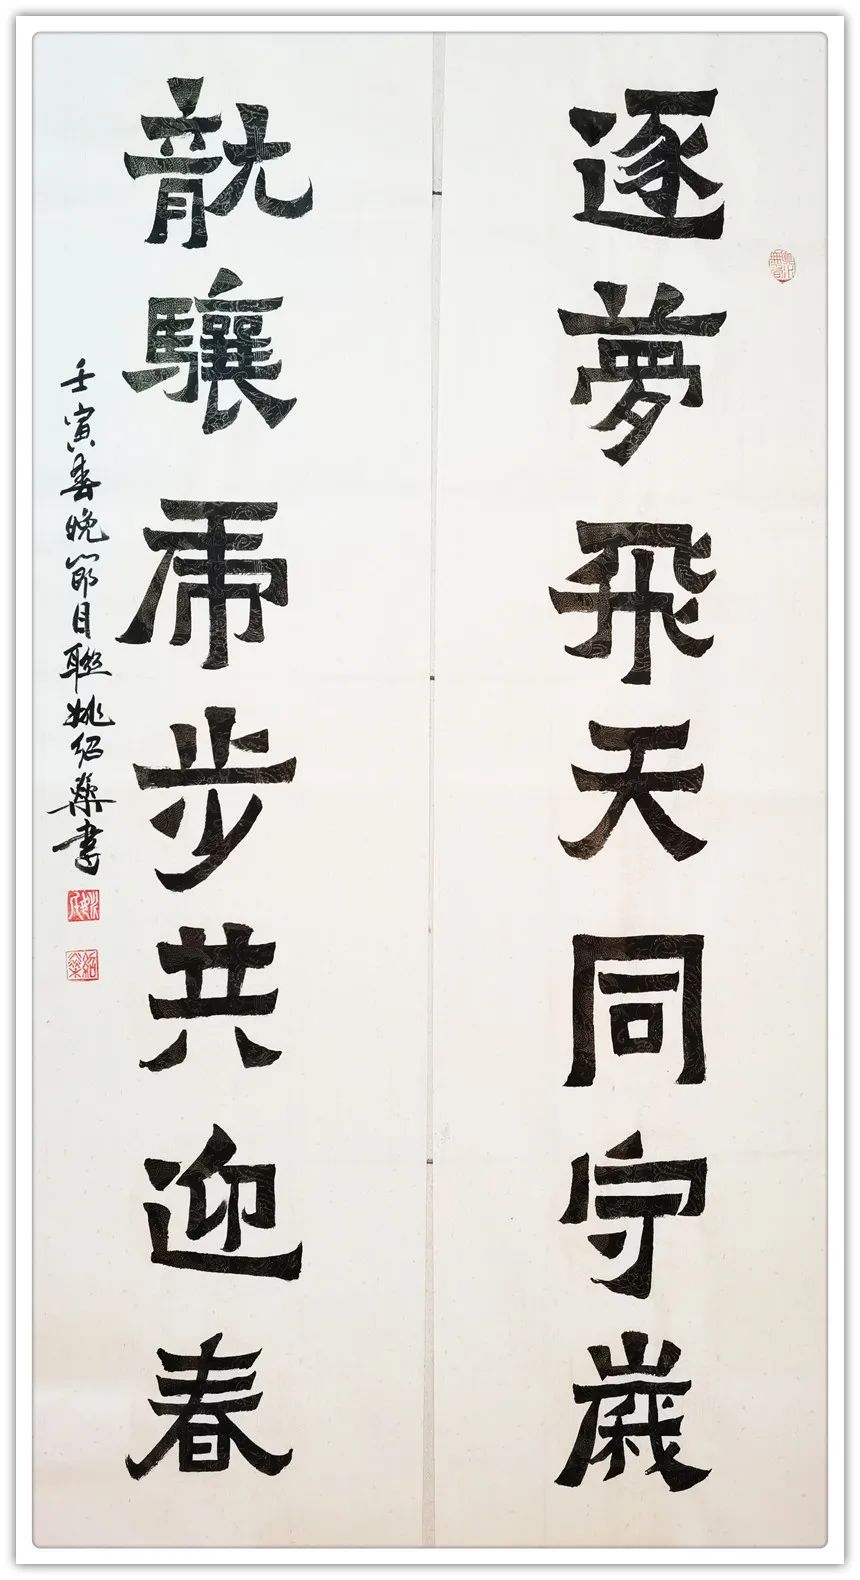 逐夢飛天同守歲
龍驤虎步共迎春
壬寅春晚節目聯姚紹書